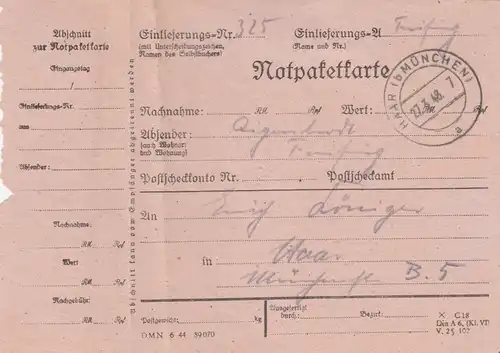 Abschnitt
zur Notpaketkarte
Eingangstag
/
Einlieferungs-Nr.
aus
Absender:
Nachnahme:
RM Rpf
Wert
RM Rpf
Nachgebühr:
RM Rpf
Abschnitt kann vom Empfänger abgetrennt werden
Einlieferungs-Nr. 325 Einlieferungs-A Freising
(mit Unterscheidungszeichen, (Name und Nr.)
Namen des Selbstbuchers)
Notpaketkarte
HAAR (b MÜNCHEN)
27.3.48. 7
a
Nachnahme: RM Rpf Wert: RM
Absender:
(auch Wohnort Freising
und Wohnung)
Postscheckkonto Nr. Postscheckamt
An Erich
in Haar
München B. 5
Postgewicht: kg
Ausgefertigt
durch: Bezirk:
DMN 6 44 39070
× C 18
Din A 6, (Kl. VI)